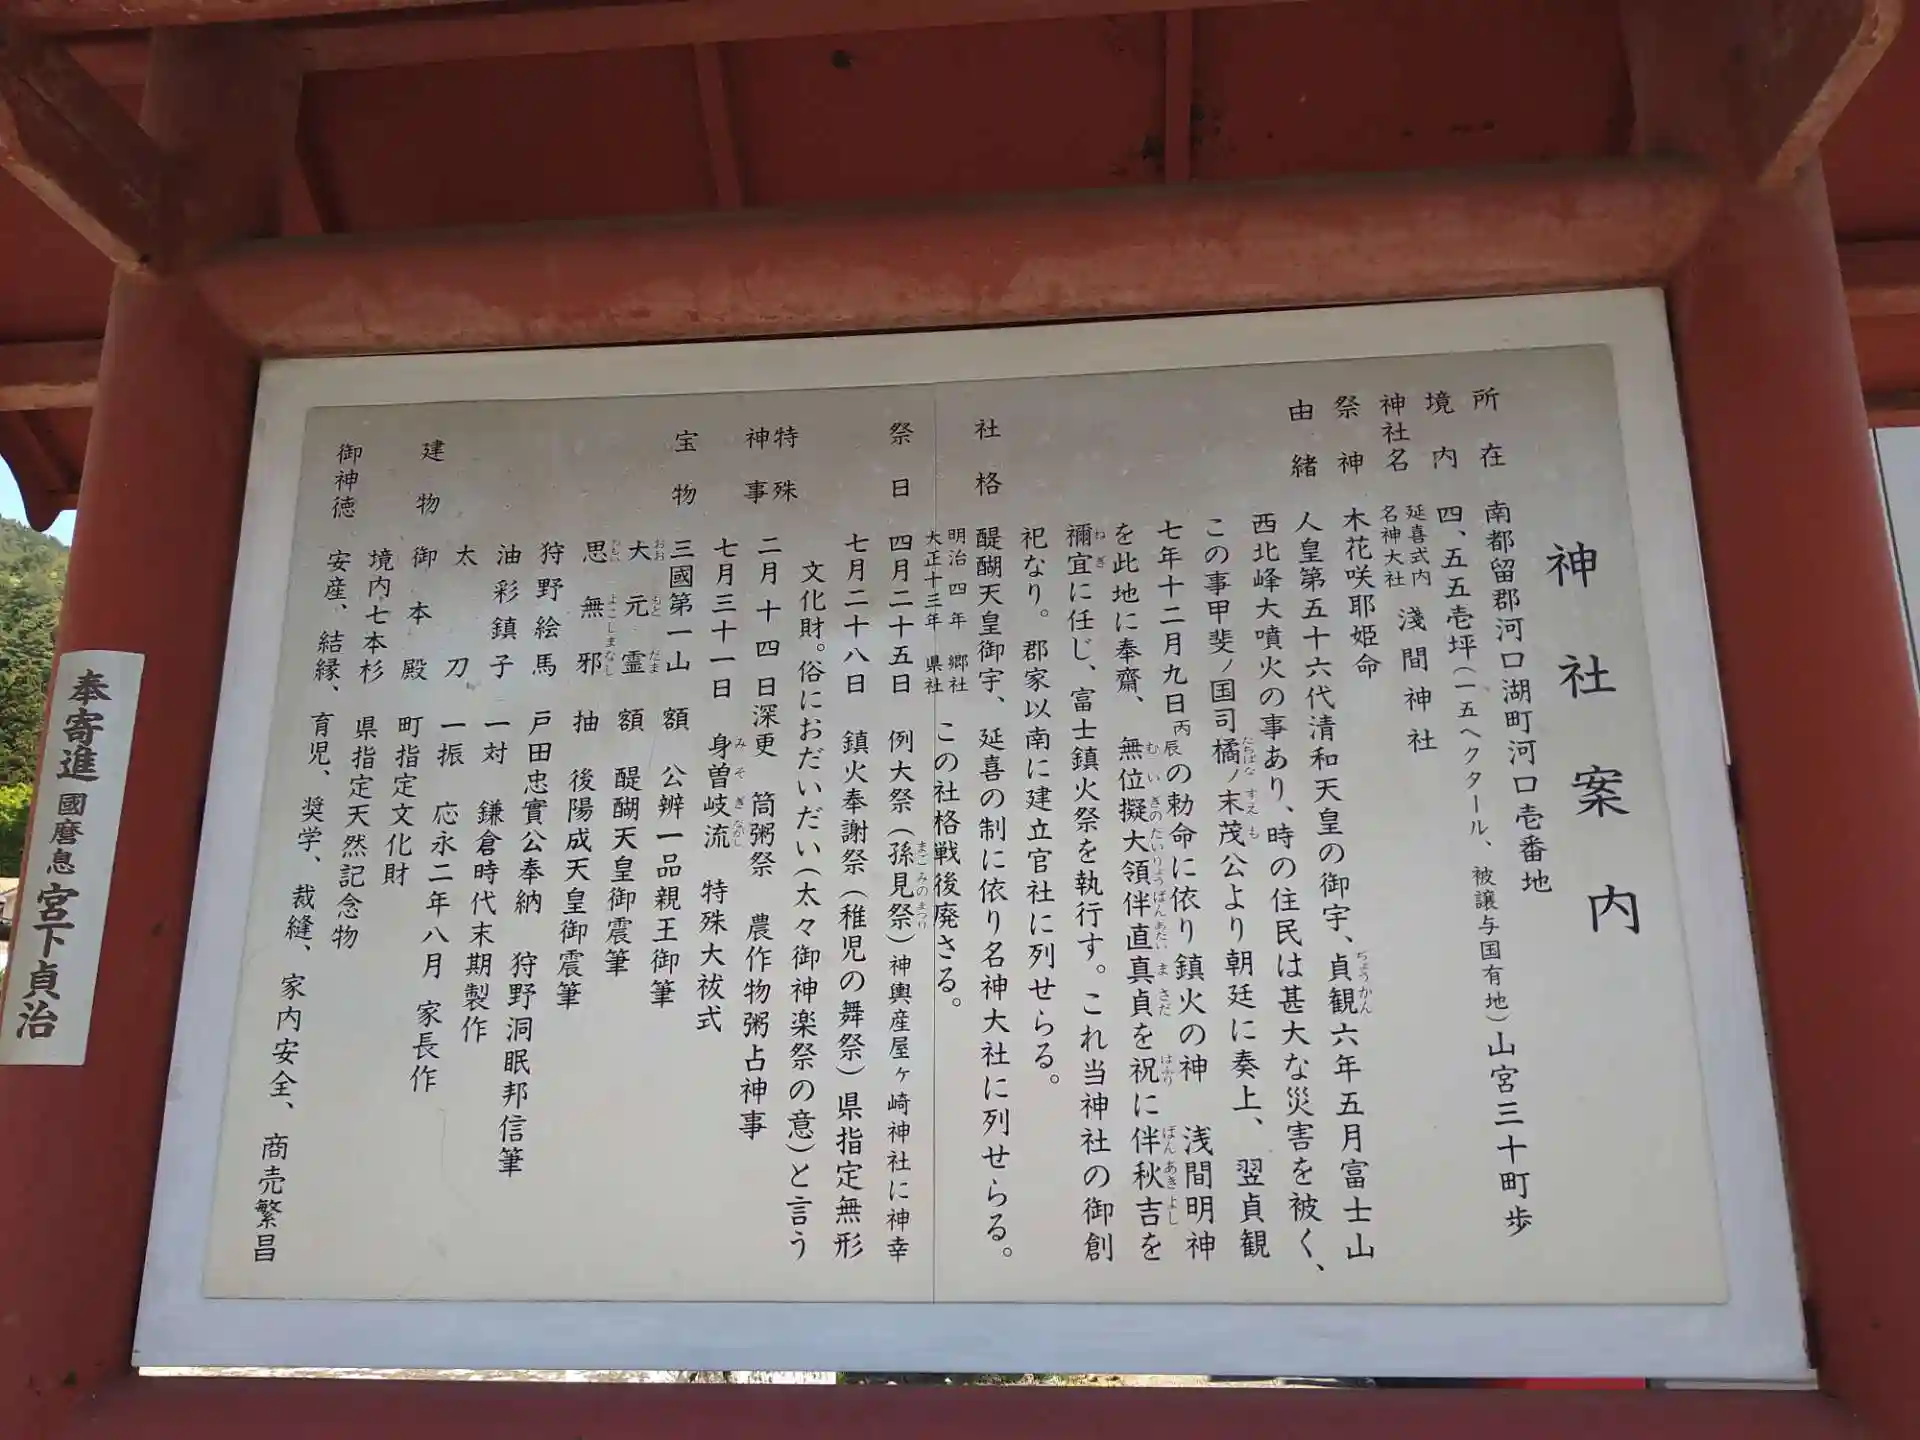 神社案内
所在 南都留郡河口湖町河口壱番地
境内 四、五五壱坪(一五ヘクタール、被譲与国有地)山宮三十町歩
神社名 延喜式内 名神大社 淺間神社
祭神 木花咲耶姫命
由緒 人皇第五十六代清和天皇の御宇、貞観六年五月富士山
西北峰大噴火の事あり、時の住民は甚大な災害を被く、
この事甲斐ノ国司橘ノ末茂公より朝廷に奏上、翌貞観
七年十二月九日丙辰の勅命に依り鎮火の神 浅間明神
を此地に奉齋、無位擬大領伴直真貞を祝に伴秋吉を
禰宜に任じ、富士鎮火祭を執行す。これ当神社の御創
祀なり。郡家以南に建立官社に列せらる。
社格 醍醐天皇御宇、延喜の制に依り名神大社に列せらる。
明治四年 郷社
大正十三年 県社 この社格戦後廃さる。
祭日 四月二十五日 例大祭(孫見祭)神輿産屋ヶ崎神社に神幸
七月二十八日 鎮火奉謝祭(稚児の舞祭)県指定無形
文化財。俗におだいだい(太々御神楽祭の意)と言う
特殊神事 二月十四日深更 筒粥祭 農作物粥占神事
七月三十一日 身曽岐流 特殊大祓式
宝物 三國第一山 額 公辨一品親王御筆
大元霊 額 醍醐天皇御震筆
思無邪 抽 後陽成天皇御震筆
狩野絵馬 戸田忠實公奉納 狩野洞眠邦信筆
油彩鎮子 一対 鎌倉時代末期製作
太刀 一振 応永二年八月 家長作
建物 御本殿 町指定文化財
境内七本杉 県指定天然記念物
御神徳 安産、結縁、育児、奨学、裁縫、家内安全、商売繁昌
奉寄進 國麿息 宮下貞治